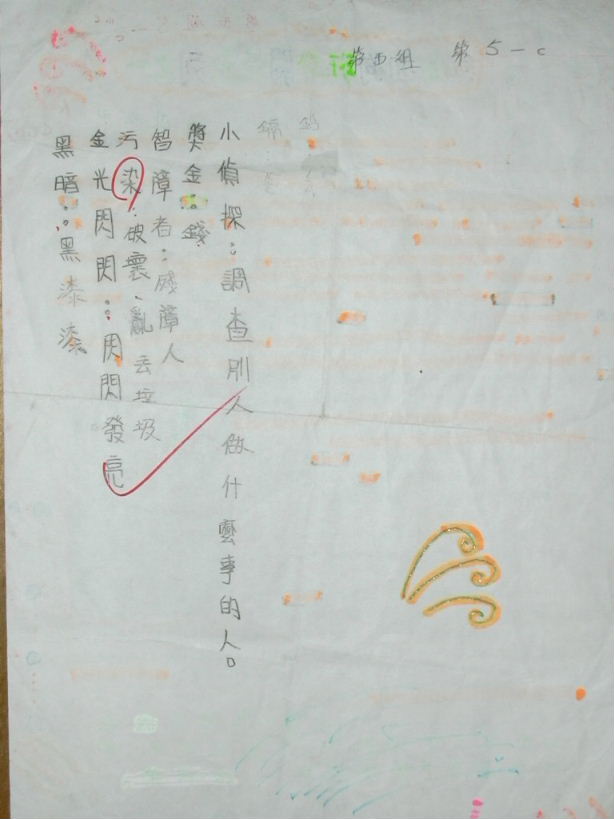 第五組 第5-c
小偵探:調查別人做什麼事的人。
獎金:錢
智障者:殘障人
污染:破壞、亂丟垃圾
金光閃閃:閃閃發亮
黑暗:黑漆漆